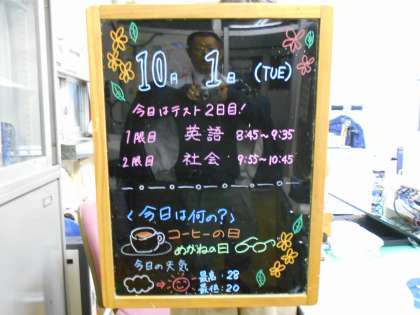 10月 1日 (TUE)
今日はテスト2日目!
1限目 英語 8:45~9:35
2限目 社会 9:55~10:45
<今日は何の?>
コーヒーの日
めがねの日
今日の天気
最高:28
最低:20